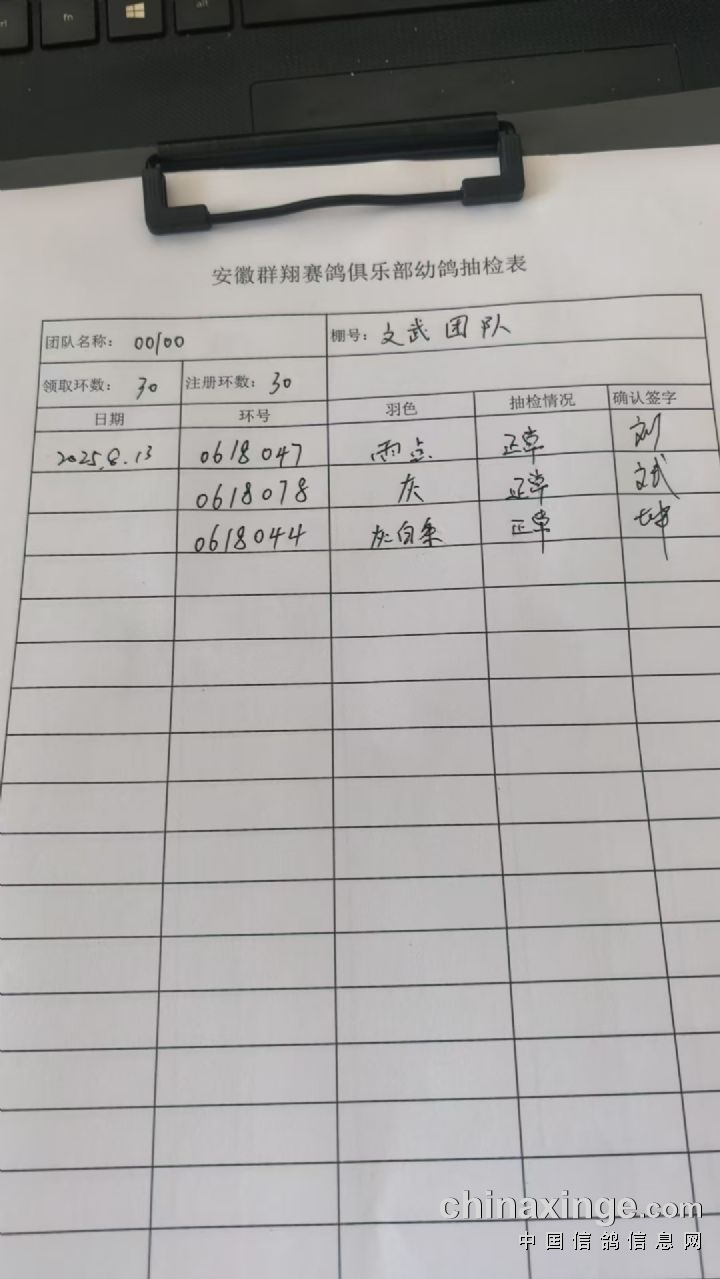 fn
alt
安徽群翔赛鸽俱乐部幼鸽抽检表
团队名称： 00100 棚号：文武团队
领取环数：30 注册环数：30
日期 环号 羽色 抽检情况 确认签字
2025.8.13 0618047 雨点 正常 刘
0618078 灰 正常 文武
0618044 灰白条 正常
chinaxinge.com
中国信鸽信息网